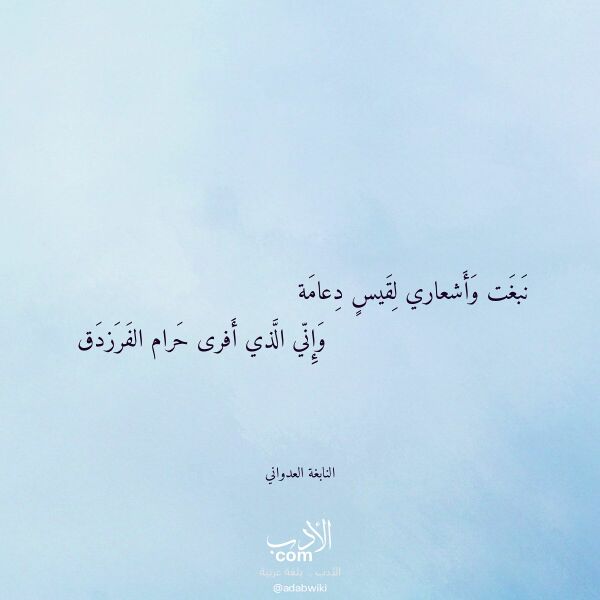 نَبغَت وَأَشعاري لِقَيسٍ دِعامَة
وَإِنّي الَّذي أَفرى حَرام الفَرَزدَق
النابغة العدواني
الأدب
com
الأدب .. بلغة عربية
@adabwiki